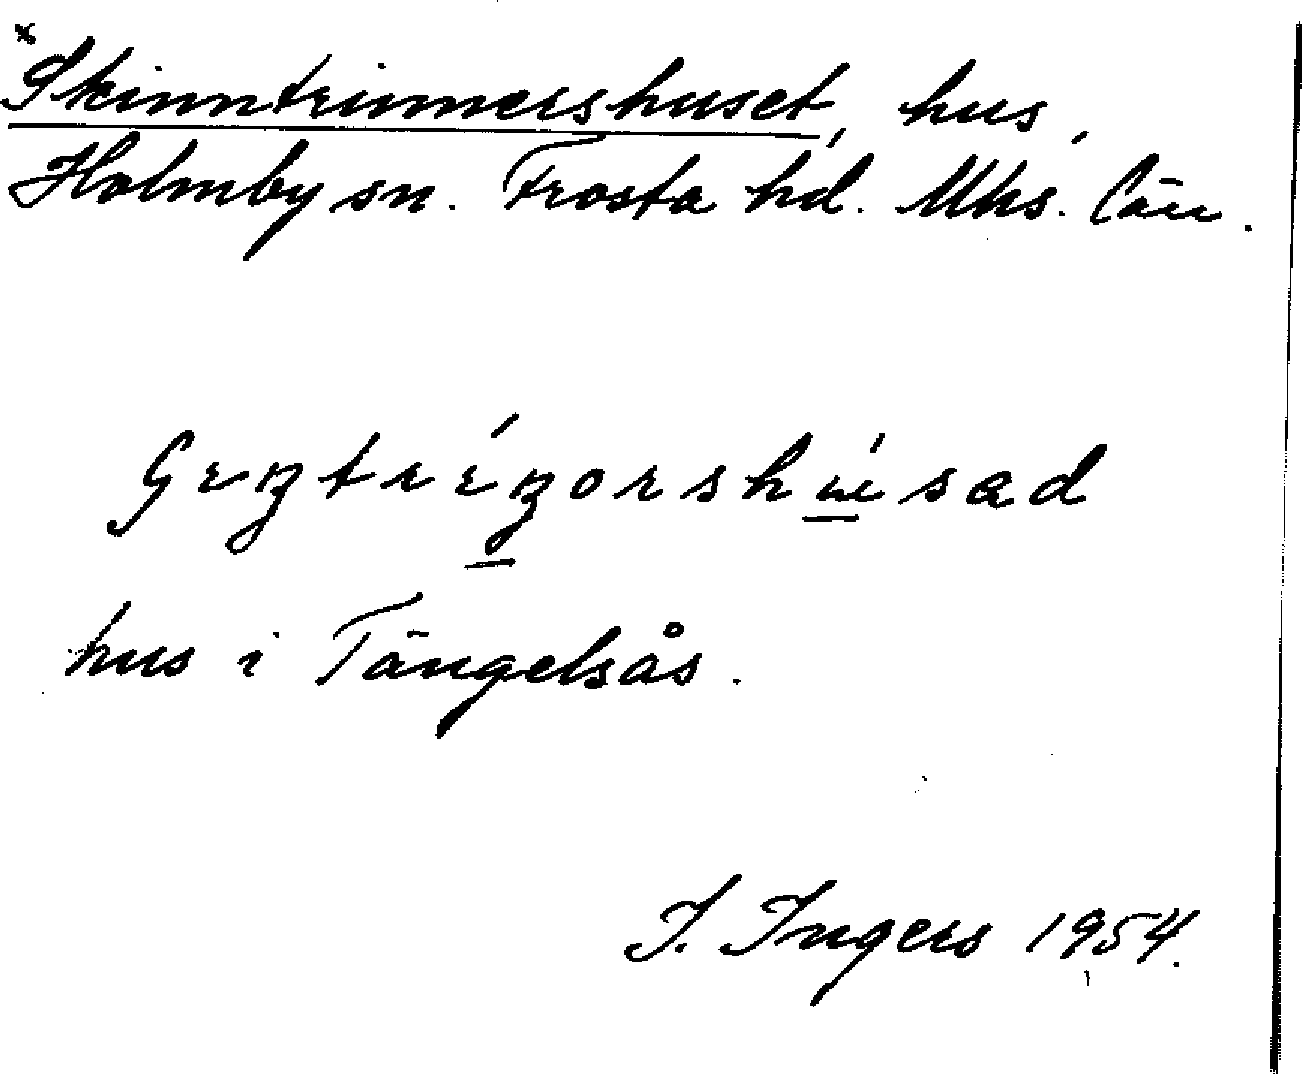 *Skinntrinnershuset, hus,
Holmby sn. Frosta hd. Mhs. län.
hus i Tängelsås.
I. Ingers 1954.